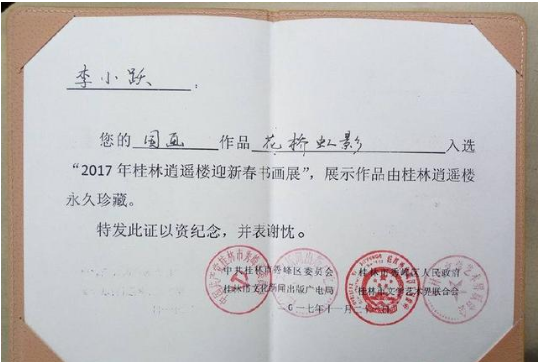 李小跃：
您的 国画 作品 花桥虹影 入选
“2017年桂林逍遥楼迎新春书画展”，展示作品由桂林逍遥楼
永久珍藏。
特发此证以资纪念，并表谢忱。
中共桂林市秀峰区委员会 桂林市秀峰区人民政府
桂林市文化新闻出版广电局 桂林市文学艺术界联合会
二〇一七年十一月二